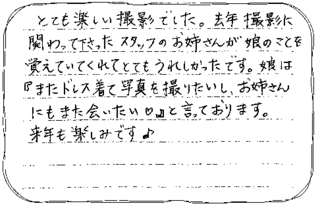 とても楽しい撮影でした。去年撮影に
関わって下さったスタッフのお姉さんが娘のことを
覚えていてくれてとてもうれしかったです。娘は
『またドレス着て写真を撮りたいし、お姉さん
にもまた会いたい♡』と言っております。
来年も楽しみです♪